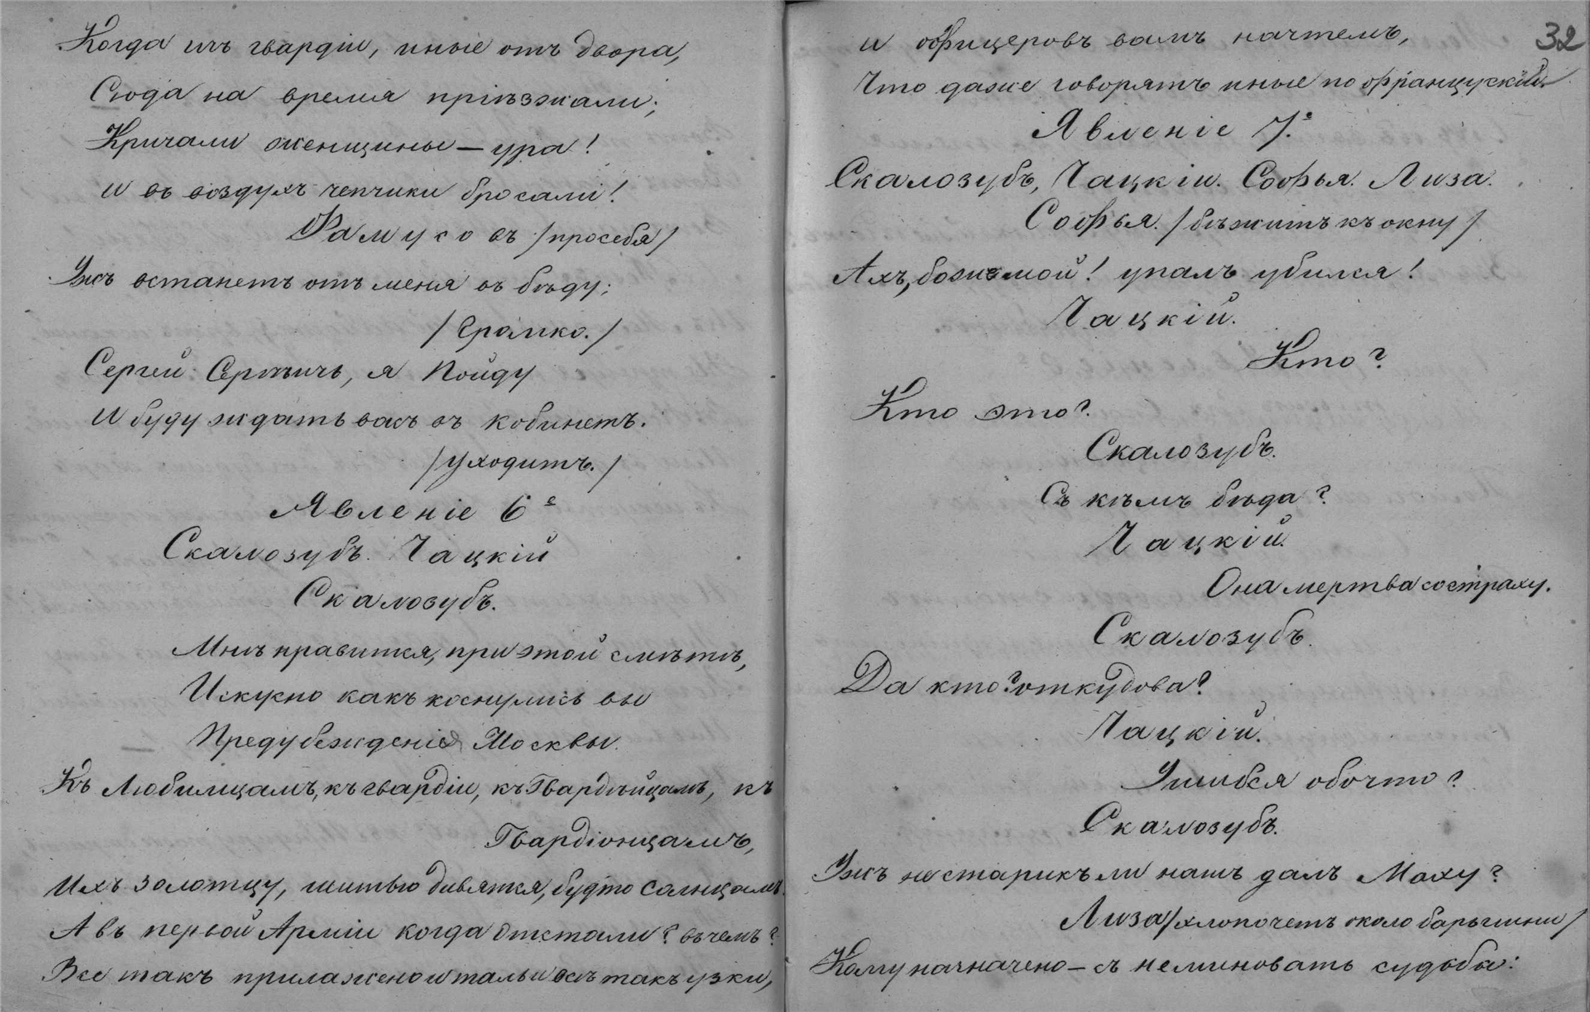 Когда изъ гвардіи, иные отъ двора,
Сюда на время пріѣзжали;
Кричали женщины — ура!
и въ воздухъ чепчики бросали!
Фамусовъ /просебя/
Ужъ втянетъ отъ меня въ бѣду;
/Громко./
Сергѣй Сергѣичъ, я Пойду
И буду ждать васъ въ кобинетъ.
/уходитъ./
Явленіе 6е
Скалозубъ. Чацкій
Скалозубъ.
Мнѣ нравится, при этой смѣтѣ,
Искусно какъ коснулись вы
Предубежденія Москвы.
Къ Любимцамъ, къ гвардіи, къ Гвардѣйцамъ, къ
Гвардіонцамъ,
Ихъ золотцу, шитью дивятся, будто солнцамъ.
А въ первой Арміи когда отстали? въ чемъ?
Все такъ прилажено и тальи всѣ такъ узки,
32
и офицеровъ вамъ начтемъ,
Что даже говорятъ иные по французскій.
Явленіе 7.е
Скалозубъ, Чацкій. Софья. Лиза.
Софья. /бѣжитъ къ окну/
Ахъ, боже мой! упалъ убился!
Чацкій.
Кто?
Кто это?
Скалозубъ.
Съ кѣмъ бѣда?
Чацкій.
Она мертва со страху.
Скалозубъ.
Да кто? откудова?
Чацкій.
Ушибся обочто?
Скалозубъ.
Ужъ не старикъ ли нашъ далъ Маху?
Лиза /хлопочетъ около барышни/
Кому назначено — съ неминовать судьбы: